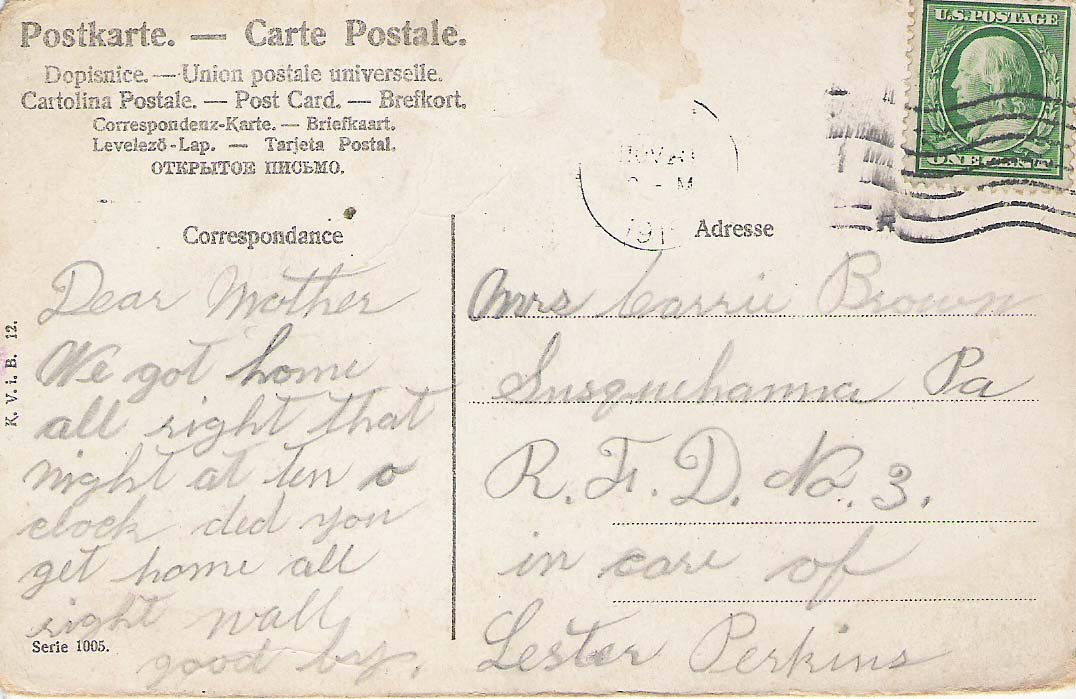 Postkarte. — Carte Postale.
Dopisnice. — Union postale universelle.
Cartolina Postale. — Post Card. — Brefkort.
Correspondenz-Karte. — Briefkaart.
Levelező-Lap. — Tarjeta Postal.
ОТКРЫТОЕ ПИСЬМО.
U.S. POSTAGE
ONE CENT
NOV
M
191
Correspondance
Dear Mother
We got home
all right that
night at ten o
clock ded you
get home all
right wall
good by.
Serie 1005.
K. V. i. B. 12.
Adresse
Mrs Carrie Brown
Susquehanna Pa
R. F. D. No. 3.
in care of
Lester Perkins